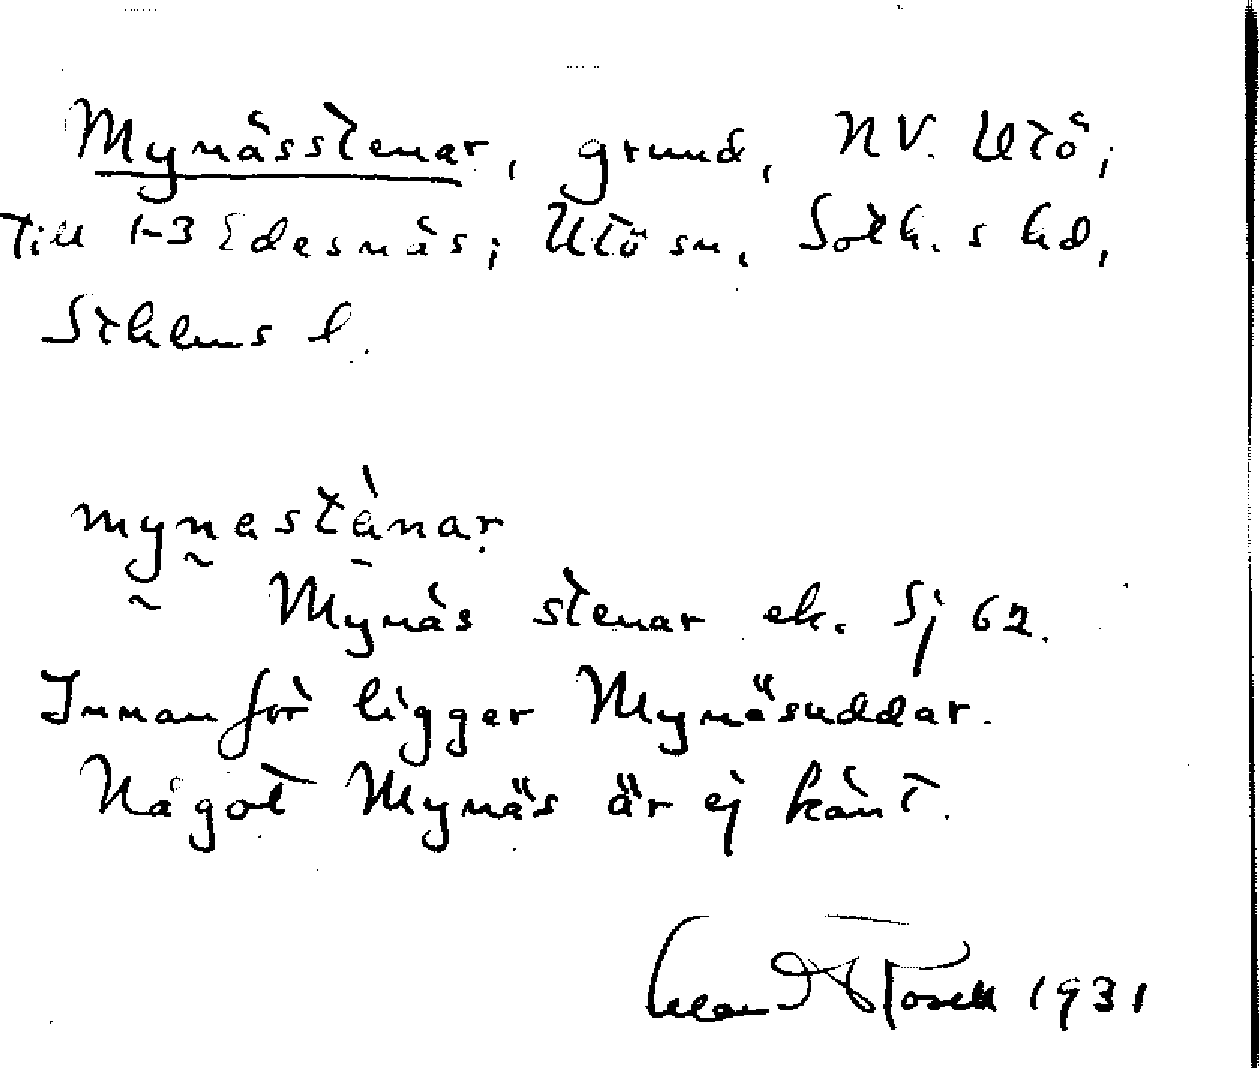 Mynässtenar, grund, NV. Utö,
Till 1-3 Edesnäs; Utö sn, Soth. s hd,
Sthlms l.
mynestenar
Mynäs stenar ek. Sj 62.
Innanför ligger Mynäsuddar.
Något Mynäs är ej känt.
1931